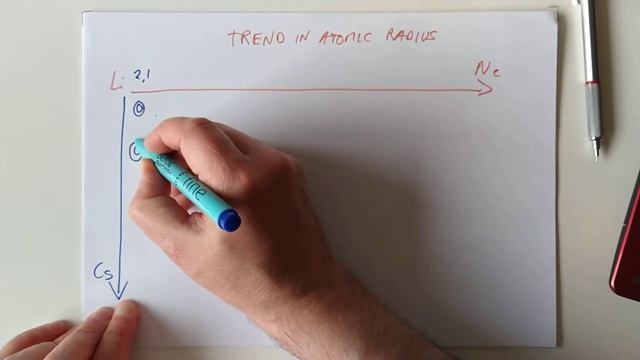 TREND IN ATOMIC RADIUS
Li 2,1
Ne
Cs
fine